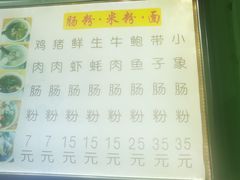 肠粉·米粉·面
鸡肉肠粉7元
猪肉肠粉7元
鲜虾肠粉15元
生蚝肠粉15元
牛肉肠粉15元
鲍鱼肠粉25元
带子肠粉35元
小象肠粉35元